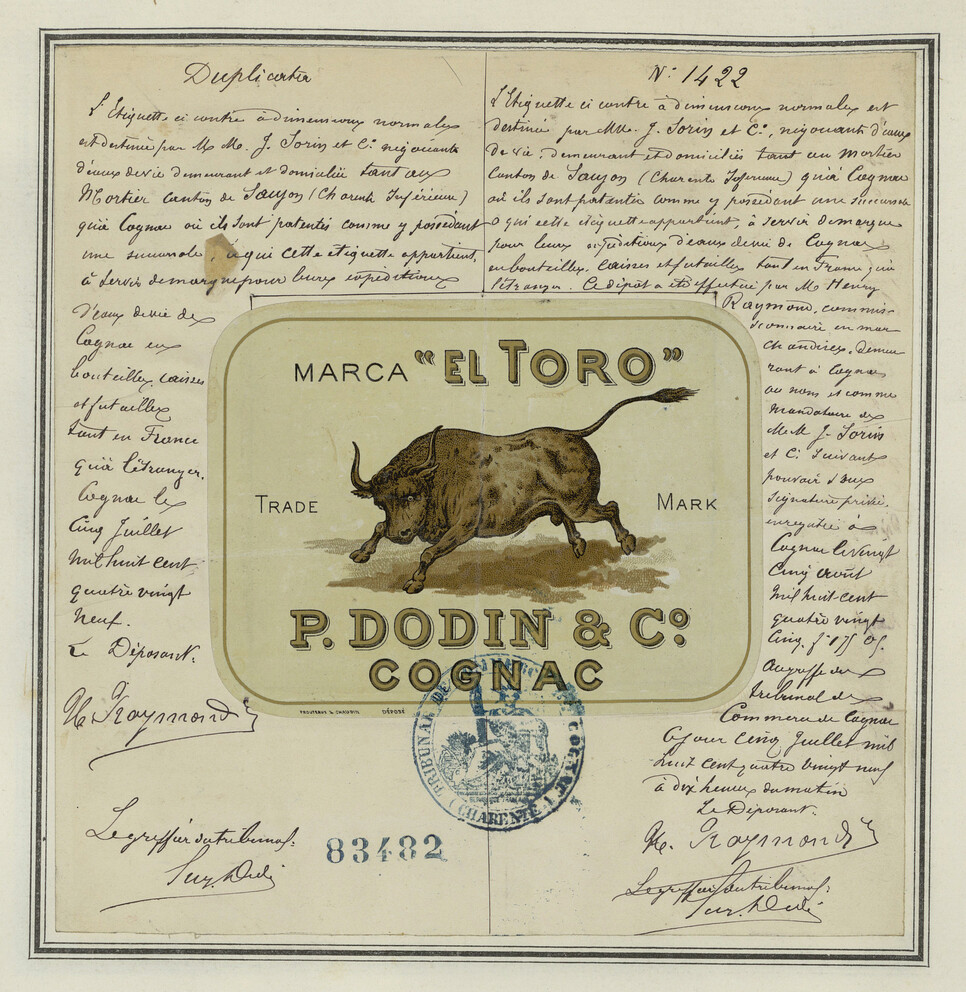 Duplicata
L'Etiquette ci contre à dimensions normales
est destinée par M M. J. Sorin et Cⁱᵉ négociants
d'eaux de vie demeurant et domiciliés tant au
Mortier canton de Saujon (Charente Inférieure)
qu'à Cognac où ils sont patentés comme y possédant
une succursale, à qui cette etiquette appartient,
à servir de marque pour leurs expéditions
d'eaux de vie de
Cognac en
bouteilles, caisses
et futailles
tant en France
qu'à l'étranger.
Cognac le
Cinq Juillet
mil huit cent
quatre vingt
neuf.
Le Déposant.
H. Raymond
Le greffier du tribunal.
N° 1422
L'Etiquette ci contre à dimensions normales est
destinée par MM. J. Sorin et Cⁱᵉ, négociants d'eaux
de vie, demeurant et domiciliés tant au Mortier
Canton de Saujon (Charente Inferieure) qu'à Cognac
où ils sont patentés comme y possédant une succursale
à qui cette etiquette appartient, à servir de marque
pour leurs expéditions d'eaux de vie de Cognac
en bouteilles, caisses et futailles tant en France qu'à
l'étranger. Ce dépôt a été effectué par M Henry
Raymond, commis-
sionnaire en mar
chandises, demeu
rant à Cognac
au nom et comme
mandataire de
MM J. Sorin
et Cⁱᵉ suivant
pouvoir sous
signature privée,
enregistré à
Cognac le vingt
Cinq août
mil huit-cent
quatre vingt
Cinq,
au greffe du
tribunal de
Commerce de Cognac
Ce jour cinq Juillet mil
huit cent quatre vingt neuf
à dix heures du matin
Le Déposant.
H. Raymond
Le greffier du tribunal.
MARCA "EL TORO"
TRADE MARK
P. DODIN & Cº
COGNAC
DÉPOSÉ
TRIBUNAL DE COMMERCE DE COGNAC
(CHARENTE)
83482